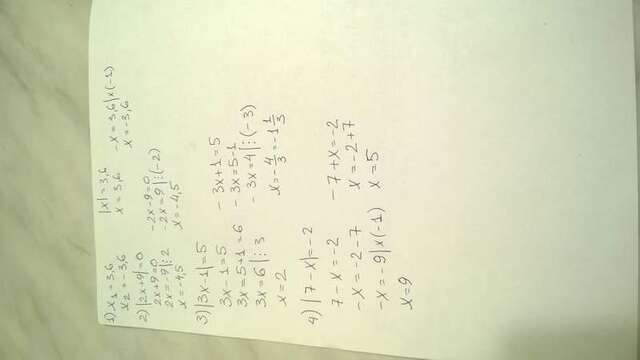 1) x₁ = 3,6
x₂ = -3,6
|x| = 3,6
x = 3,6
-x = 3,6 | x(-1)
x = -3,6
2) |2x+9| = 0
2x+9=0
2x = -9 | : 2
x = -4,5
-2x-9=0
-2x = 9 | : (-2)
x = -4,5
3) |3x-1| = 5
3x-1=5
3x = 5+1 = 6
3x = 6 | : 3
x = 2
-3x+1=5
-3x=5-1
-3x=4 | : (-3)
x = -4/3 = -1 1/3
4) |7-x| = -2
7-x = -2
-x = -2-7
-x = -9 | x(-1)
x = 9
-7+x = -2
x = -2+7
x = 5